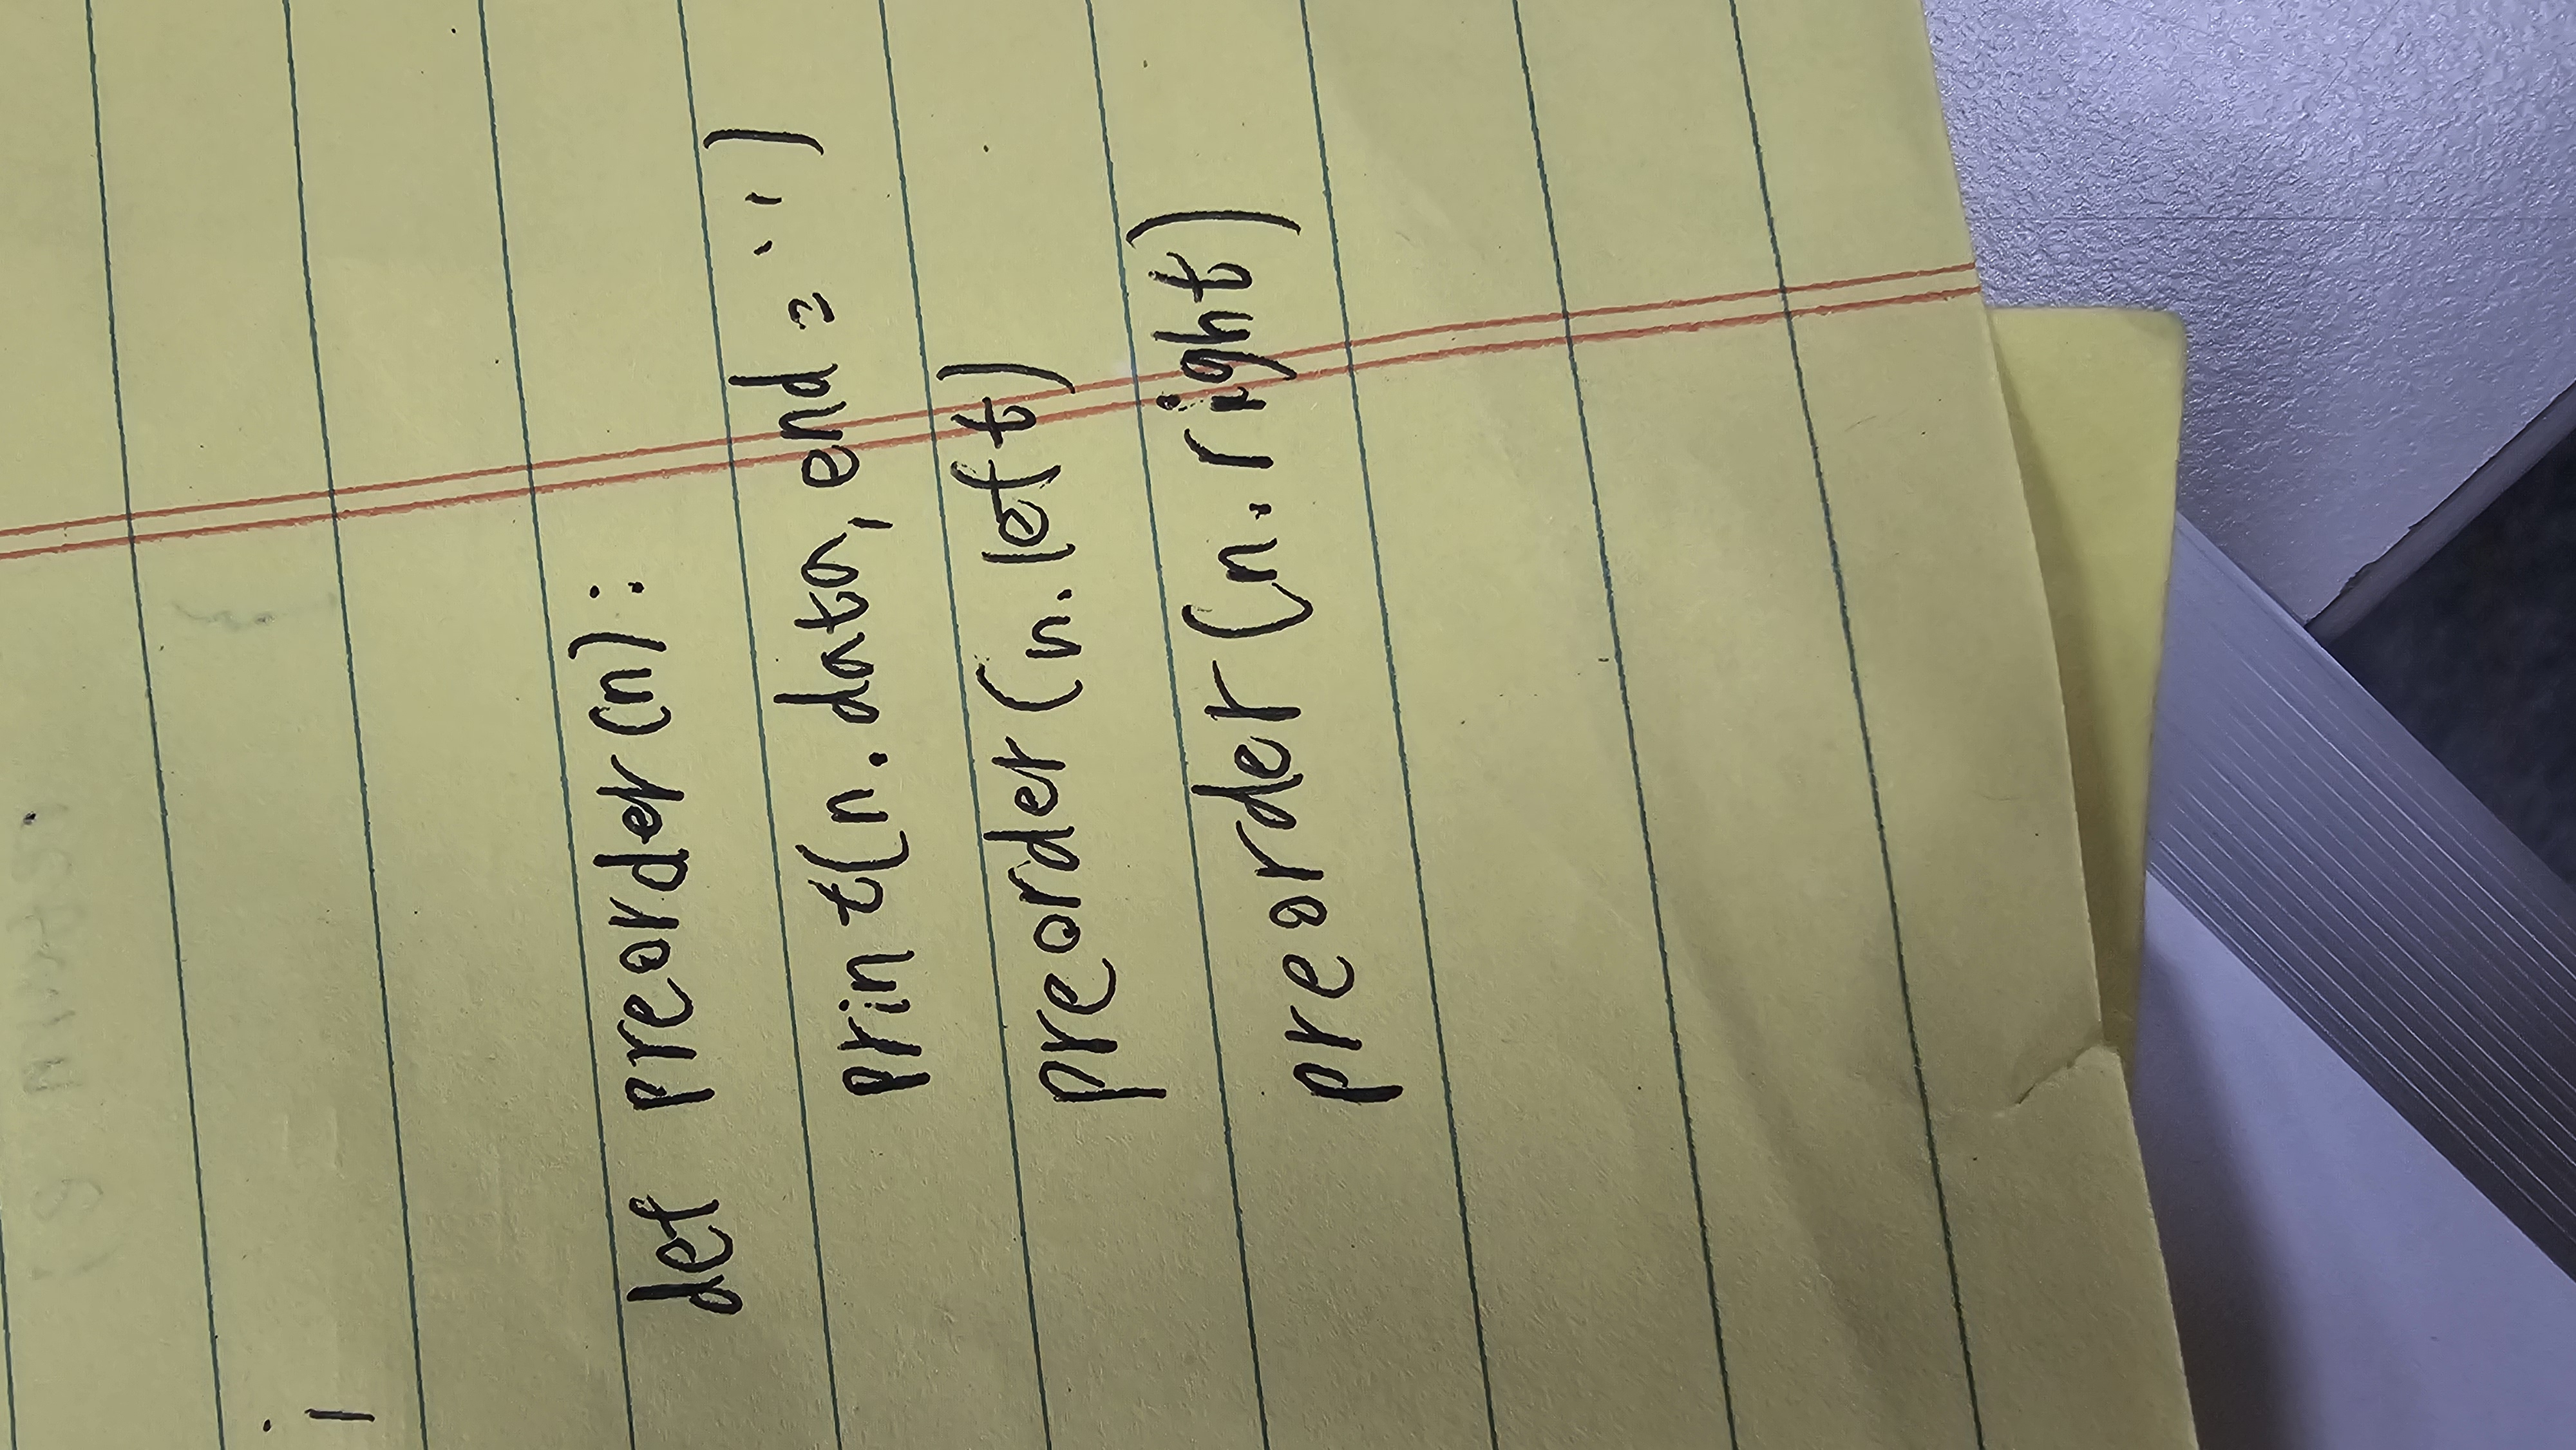 i
def preorder(n):
print(n.data, end = '')
preorder(n.left)
preorder(n.right)